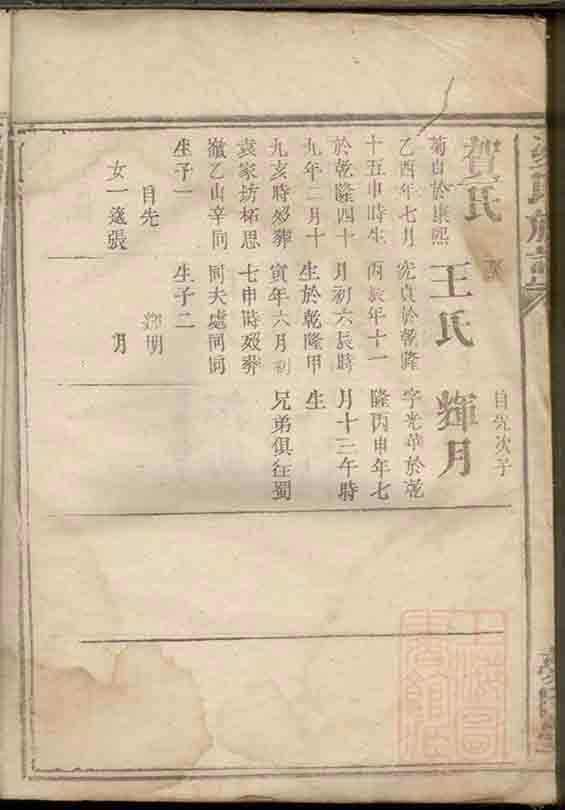 賀氏
菊貞於康熙
乙酉年七月
十五申時生
於乾隆四十
九年二月十
九亥時歿葬
袁家坊柘思
嶺乙山辛向
生子一
目先
女一適張
王氏
完貞於乾隆
丙辰年十一
月初六辰時
生於乾隆甲
寅年六月初
七申時歿葬
同夫處同向
生子二
輝明
月
目先次子
輝月
字光華於乾
隆丙申年七
月十三午時
生
兄弟俱往蜀
氏族
上海圖
書館藏